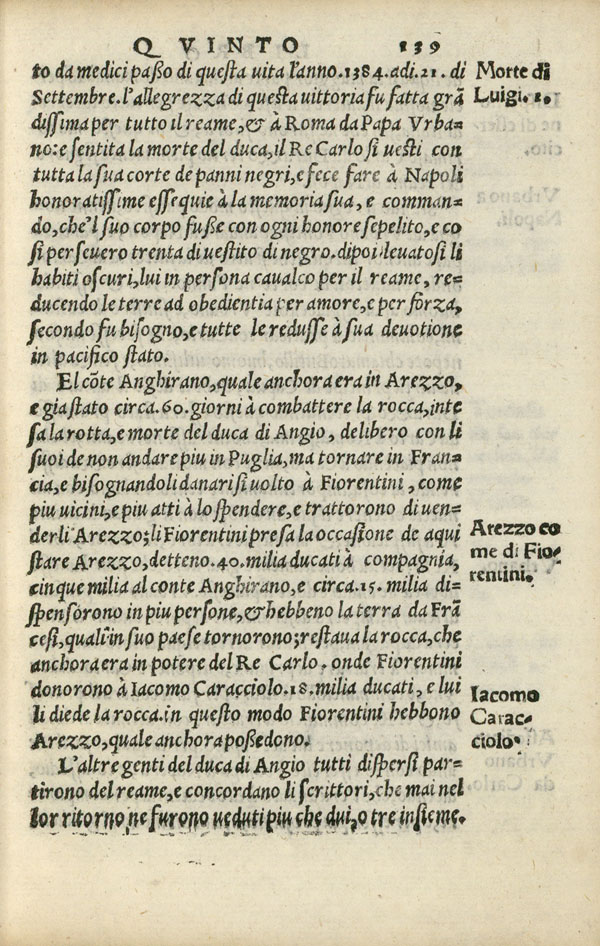 QVINTO 139
to da medici paßo di questa uita l'anno.1384.adi.21. di
Settembre.l'allegrezza di questa uittoria fu fatta grã
dissima per tutto il reame,& à Roma da Papa Vrba-
no:e sentita la morte del duca,il Re Carlo si uesti con
tutta la sua corte de panni negri,e fece fare à Napoli
honoratissime essequie à la memoria sua, e comman-
do,che'l suo corpo fuße con ogni honore sepelito,e co
si perseuero trenta di uestito di negro.dipoi leuatosi li
habiti oscuri,lui in persona caualco per il reame, re-
ducendo le terre ad obedientia per amore,e per forza,
secondo fu bisogno,e tutte le redusse à sua deuotione
in pacifico stato.
El cõte Anghirano,quale anchora era in Arezzo,
e gia stato circa.60.giorni à combattere la rocca,inte
sa la rotta,e morte del duca di Angio, delibero con li
suoi de non andare piu in Puglia,ma tornare in Fran-
cia,e bisognandoli danari si uolto à Fiorentini, come
piu uicini,e piu atti à lo spendere,e trattorono di uen-
derli Arezzo;li Fiorentini presa la occasione de aqui
stare Arezzo,detteno.40.milia ducati à compagnia,
cinque milia al conte Anghirano,e circa.15. milia di-
spensorono in piu persone,& hebbeno la terra da Frã
cesi,quali in suo paese tornorono;restaua la rocca,che
anchora era in potere del Re Carlo. onde Fiorentini
donorono à Iacomo Caracciolo.18.milia ducati, e lui
li diede la rocca.in questo modo Fiorentini hebbono
Arezzo,quale anchora poßedono.
L'altre genti del duca di Angio tutti dispersi par-
tirono del reame,e concordano li scrittori,che mai nel
lor ritorno ne furono ueduti piu che dui,o tre insieme.
Morte di
Luigi. 1.
Arezzo co
me di Fio-
rentini.
Iacomo
Carac-
ciolo.